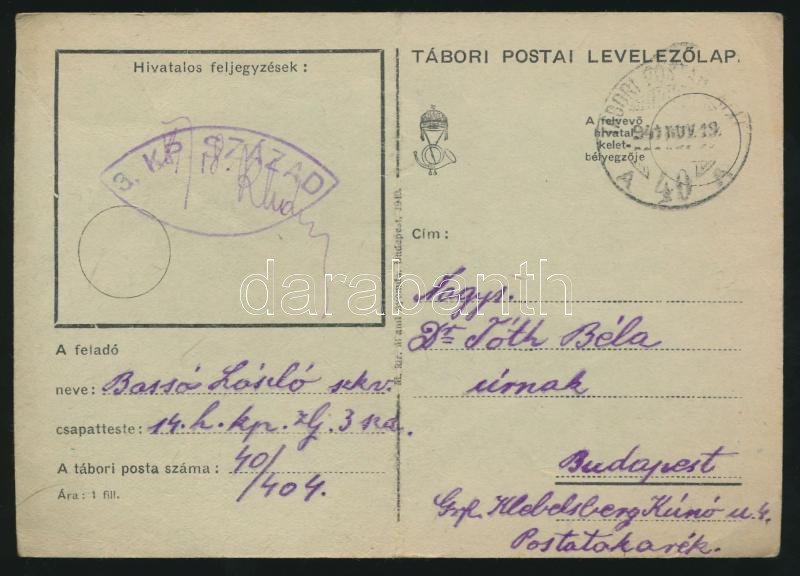 Hivatalos feljegyzések :
3. KP. SZÁZAD
A feladó
neve: Bassó László
csapatteste: 14. h. kp. zlj. 3 szd.
A tábori posta száma : 40/
404.
Ára : 1 fill.
TÁBORI POSTAI LEVELEZŐLAP.
A felvevő
hivatal
kelet-
bélyegzője
941 NOV. 19
A 40 A
Cím :
Nagys.
Dr Tóth Béla
úrnak
Budapest
Grf. Klebelsberg Kúnó u. 4.
Postatakarék.
darabanth